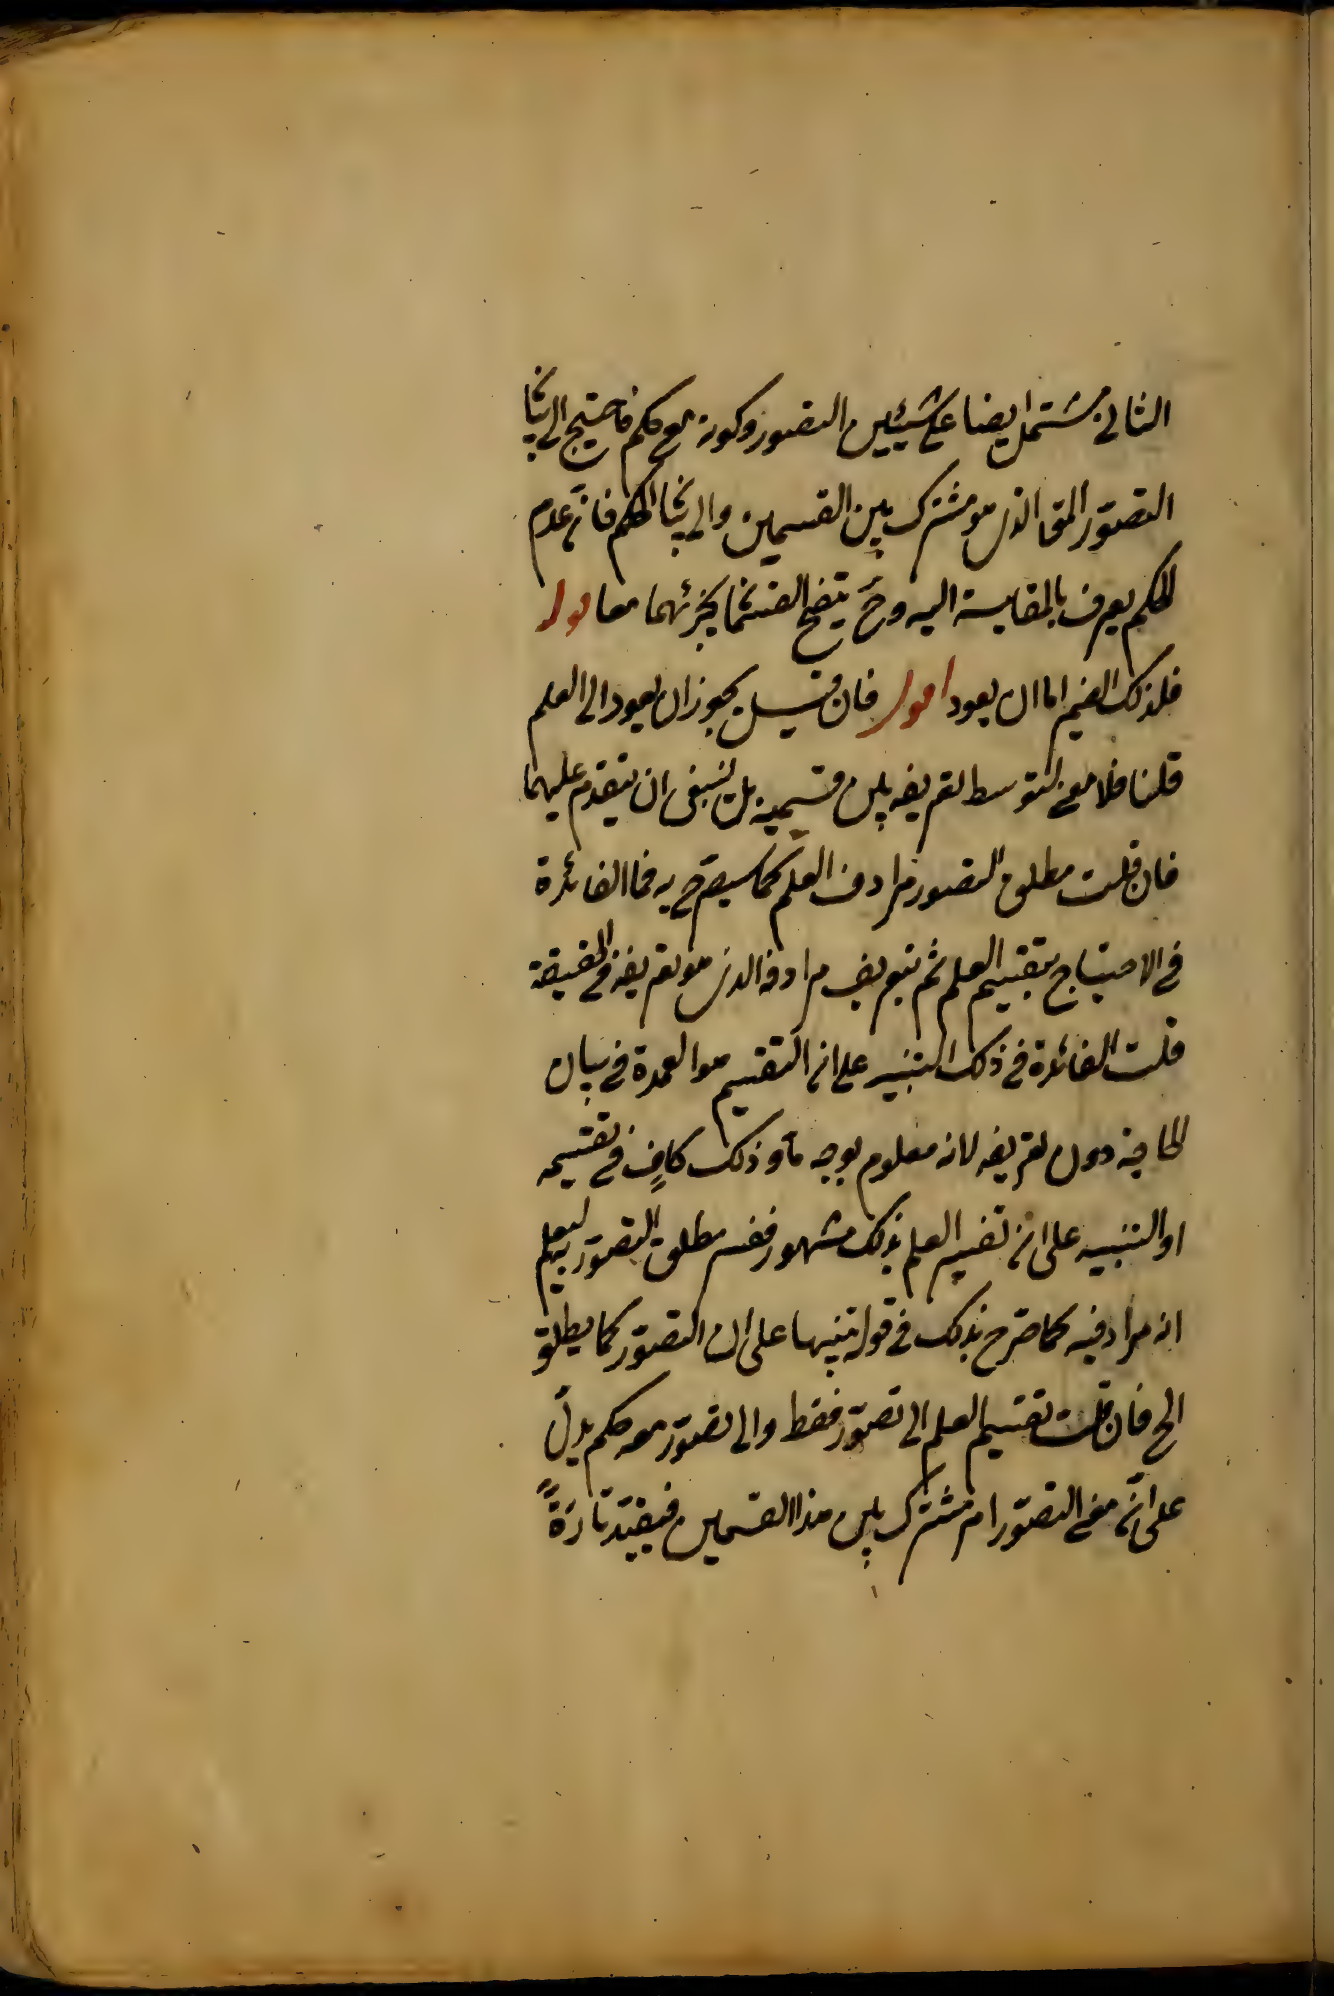 الثانى مشتمل ايضا على شيئين التصور وكونه مع حكم فاحتيج الى بيا
التصوّر الذى هو مشترك بين القسمين والى بيا الحكم فانّ عدم
الحكم يعرف بالمقايسة اليه وحَ يتضح القسما بجزئهما معا قوله
فلذلك الضمير اما ان يعود اقول فان قيل يجوز ان يعود الى العلم
قلنا فلا معنى لتوسط تعريفه بين قسميه بل ينبغى ان يتقدم عليهما
فان قلت مطلق التصور مرادف العلم كما سيصرّح به فما الفائدة
فى الاحتياج بتقسيم العلم ثم بتعريف مرادفه الذى هو تعريفه فى الحقيقة
قلت الفائدة فى ذلك التنبيه على ان التقسيم هو العمدة فى بيان
دون تعريفه لانه معلوم بوجه مّا وذلك كافٍ فى تقسيمه
او التنبيه على انّ تفسير العلم بذلك مشهور ففسر مطلق التصوّر به ليعلم
انه مرادفه كما صرّح بذلك فى قوله تنبيها على ان التصوّر كما يطلق
الخ فان قلت تقسيم العلم الى تصوّر فقط والى تصوّر معه حكم يدلّ
على انّ معنى التصوّر امر مشترك بين هذا القسمين فيقيّد تارةً